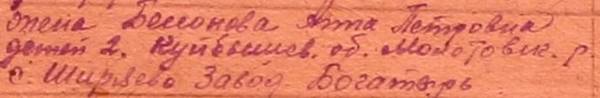 жена Белонова Анна Петровна
детей 2. Куйбышев. об. Молотовск. р.
с. Ширяево Завод Богатырь